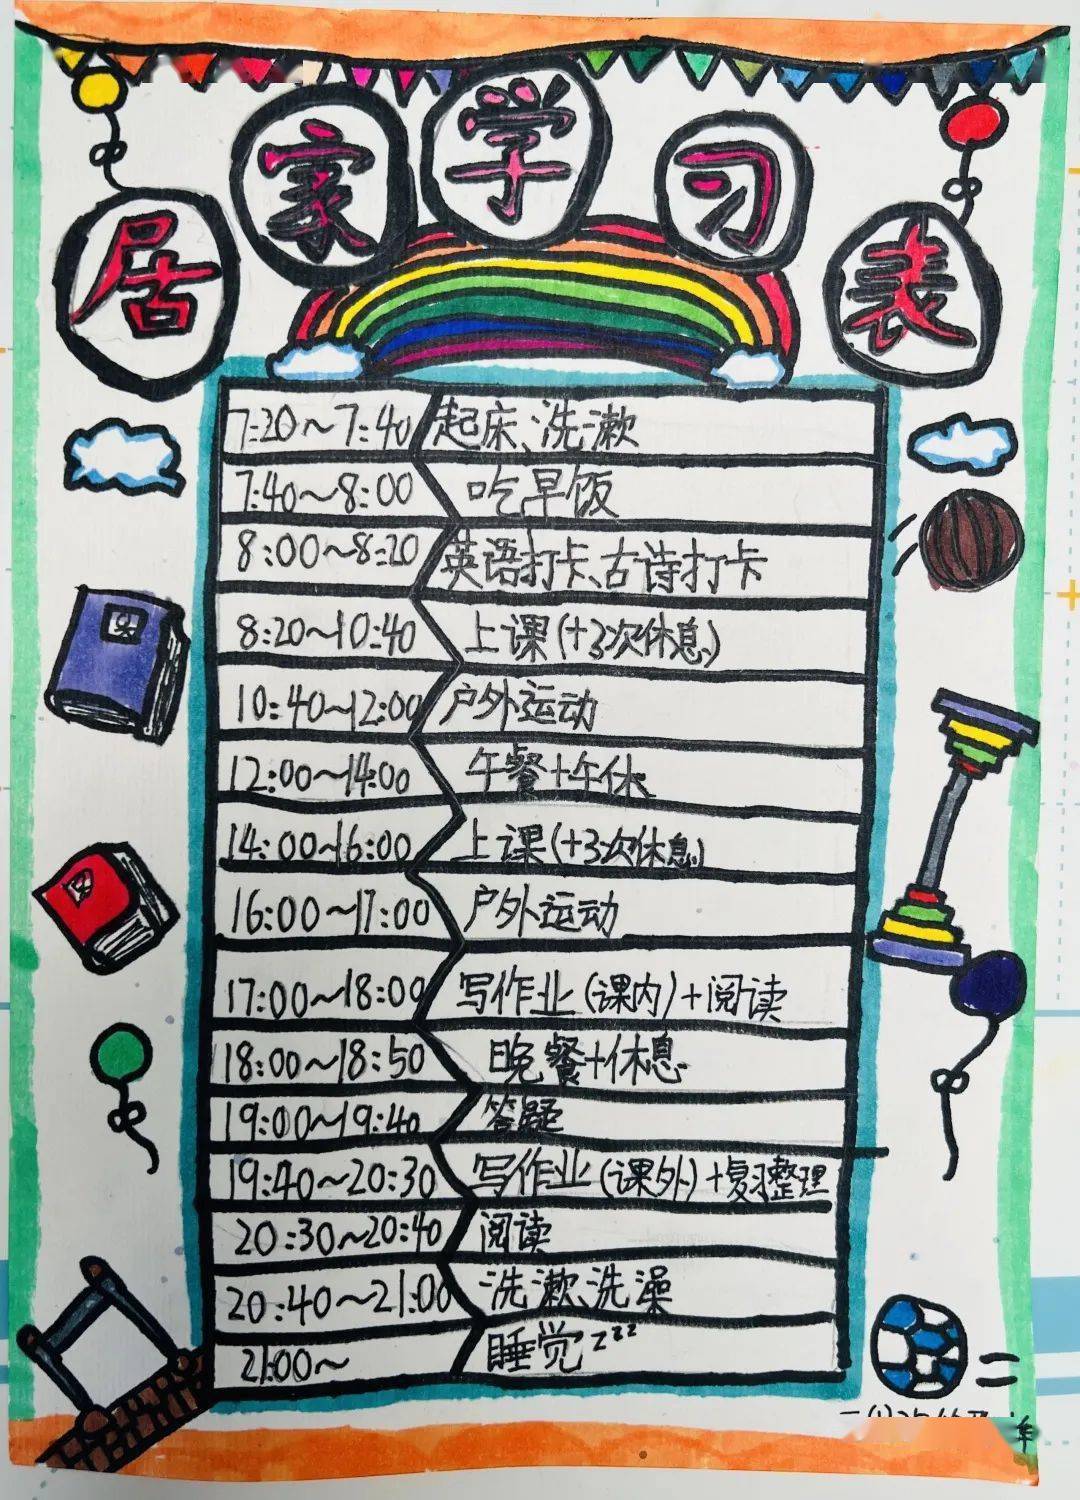 居家学习表
7:20~7:40 起床、洗漱
7:40~8:00 吃早饭
8:00~8:20 英语打卡、古诗打卡
8:20~10:40 上课(+3次休息)
10:40~12:00 户外运动
12:00~14:00 午餐+午休
14:00~16:00 上课(+3次休息)
16:00~17:00 户外运动
17:00~18:00 写作业(课内)+阅读
18:00~18:50 晚餐+休息
19:00~19:40 答疑
19:40~20:30 写作业(课外)+复习整理
20:30~20:40 阅读
20:40~21:00 洗漱、洗澡
21:00~ 睡觉zzz